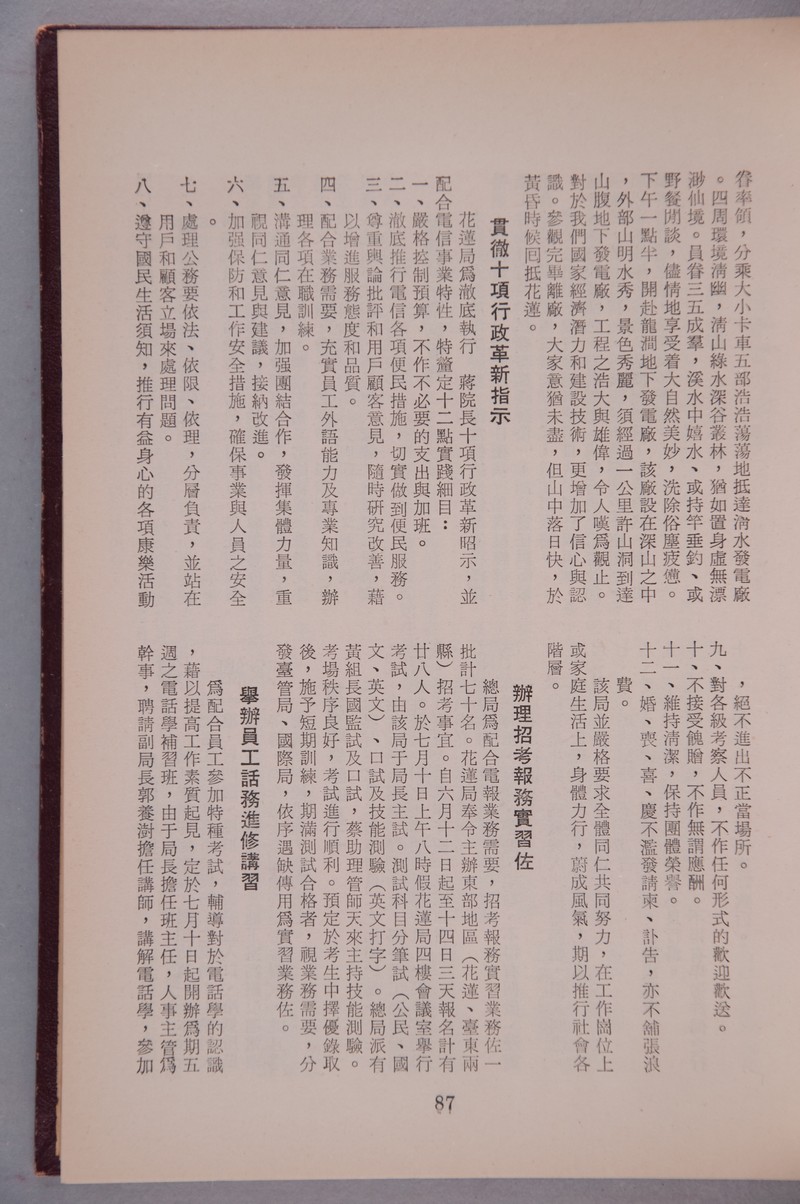 眷率領，分乘大小卡車五部浩浩蕩蕩地抵達淸水發電廠
。四周環境淸幽，靑山綠水深谷叢林，猶如置身虛無漂
渺仙境。員眷三五成羣，溪水中嬉水、或持竿垂釣、或
野餐閒談，儘情地享受着大自然美妙，洗除俗塵疲憊。
下午一點半，開赴龍澗地下發電廠，該廠設在深山之中
，外部山明水秀，景色秀麗，須經過一公里許山洞到達
山腹地下發電廠，工程之浩大與雄偉，令人嘆爲觀止。
對於我們國家經濟潛力和建設技術，更增加了信心與認
識。參觀完畢離廠，大家意猶未盡，但山中落日快，於
黃昏時候囘抵花蓮。
貫徹十項行政革新指示
花蓮局爲澈底執行　蔣院長十項行政革新昭示，並
配合電信事業特性，特釐定十二點實踐細目：
一、嚴格控制預算，不作不必要的支出與加班。
二、澈底推行電信各項便民措施，切實做到便民服務。
三、尊重輿論批評和用戶顧客意見，隨時研究改善，藉
以增進服務態度和品質。
四、配合業務需要，充實員工外語能力及專業知識，辦
理各項在職訓練。
五、溝通同仁意見，加强團結合作，發揮集體力量，重
視同仁意見與建議，接納改進。
六、加强保防和工作安全措施，確保事業與人員之安全
。
七、處理公務要依法、依限、依理，分層負責，並站在
用戶和顧客立場來處理問題。
八、遵守國民生活須知，推行有益身心的各項康樂活動
，絕不進出不正當場所。
九、對各級考察人員，不作任何形式的歡迎歡送。
十、不接受餽贈，不作無謂應酬。
十一、維持淸潔，保持團體榮譽。
十二、婚、喪、喜、慶不濫發請柬、訃告，亦不舖張浪
費。
該局並嚴格要求全體同仁共同努力，在工作崗位上
或家庭生活上，身體力行，蔚成風氣，期以推行社會各
階層。
辦理招考報務實習佐
總局爲配合電報業務需要，招考報務實習業務佐一
批計七十名。花蓮局奉令主辦東部地區（花蓮、臺東兩
縣）招考事宜。自六月十二日起至十四日三天報名計有
廿八人。於七月十日上午八時假花蓮局四樓會議室舉行
考試，由該局于局長主試。測試科目分筆試（公民、國
文、英文）、口試及技能測驗（英文打字）。總局派有
黃組長國監試及口試，蔡助理管師天來主持技能測驗。
考場秩序良好，考試進行順利。預定於考生中擇優錄取
後，施予短期訓練，期滿測試合格者，視業務需要，分
發臺管局、國際局，依序遇缺傳用爲實習業務佐。
舉辦員工話務進修講習
爲配合員工參加特種考試，輔導對於電話學的認識
，藉以提高工作素質起見，定於七月十日起開辦爲期五
週之電話學補習班，由于局長擔任班主任，人事主管爲
幹事，聘請副局長郭養澍擔任講師，講解電話學，參加
87